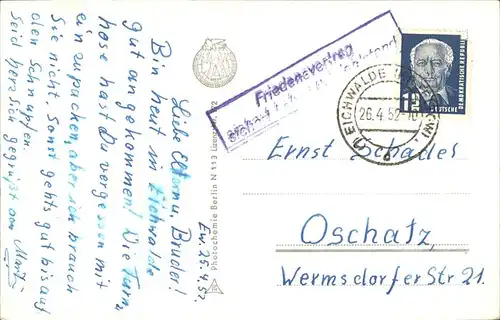 Ew. 25.4.52.
Liebe Eltern u. Bruder!
Bin heut in Eichwalde
gut angekommen! Die Turn
hose hast Du vergessen mit
einzupacken, aber ich brauch
Sie nicht. Sonst gehts gut bis auf
den Schnupfen.
Seid herzlich gegrüßt von
Photochemie Berlin N 113
Friedensvertrag
DEUTSCHE
DEMOKRATISCHE REPUBLIK
12
EICHWALDE
26.4.52-10
Ernst Schades
Oschatz,
Wermsdorfer Str 21.